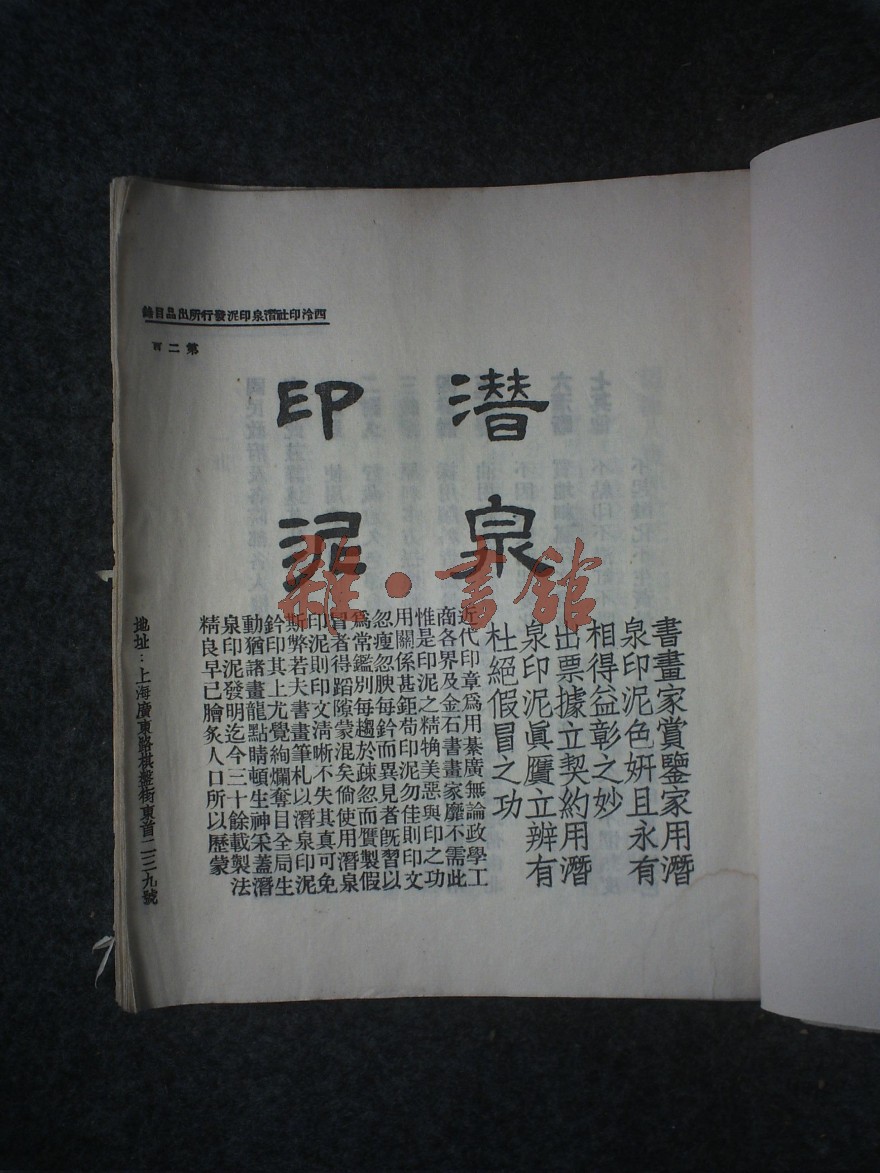 西泠印社潛泉印泥發行所出品目錄
第二頁
潛泉
印泥
書畫家賞鑒家用潛
泉印泥色姸且永有
相得益彰之妙
出票據立契約用潛
泉印泥眞贋立辨有
杜絕假冒之功
近代印章爲用綦廣無論政學工
商各界及金石書畫家靡不需此
惟是印泥之精觕美惡與印之功
用關係甚鉅苟印泥勿佳則印文
忽瘦忽腴每鈐而異見者旣習以
爲常鑑別每趨於疎忽而贋製假
冒者得蹈隙蒙混矣倘使用潛泉
印泥則印文淸晰不失其真可免
斯弊若夫書畫筆札以潛泉印泥
鈐印其上尤覺絢爛奪目全局生
動猶諸畫龍點睛頓生神采蓋潛
泉印泥發明迄今三十餘載製法
精良早已膾炙人口所以歷蒙
地址：上海廣東路棋盤街東首二三九號
雜·書館